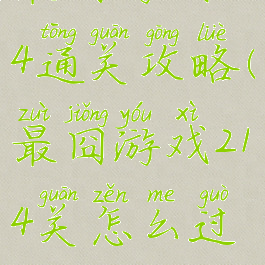 tōng guān gōng lüè
4通关攻略(
zuì jiǒng yóu xì
最囧游戏21
guān zěn me guò
4关怎么过